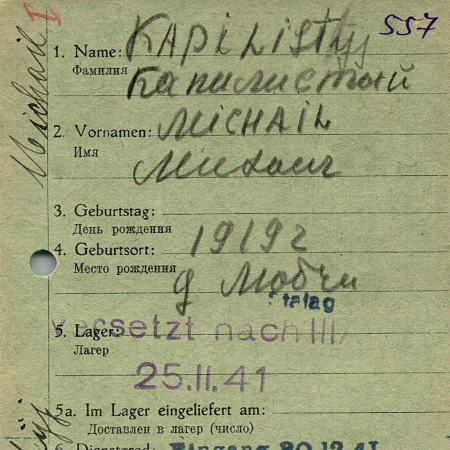 I
557
Michail
1. Name: KAPILISTYJ
Фамилия Капилистый
2. Vornamen: MICHAIL
Имя Михаил
3. Geburtstag:
День рождения 1919 г
4. Geburtsort:
Место рождения д Любчи
Stalag
versetzt nach III/
5. Lager:
Лагер
25.11.41
5a. Im Lager eingeliefert am:
Доставлен в лагер (число)
6. Dienstgrad: Eingang 20.12.41